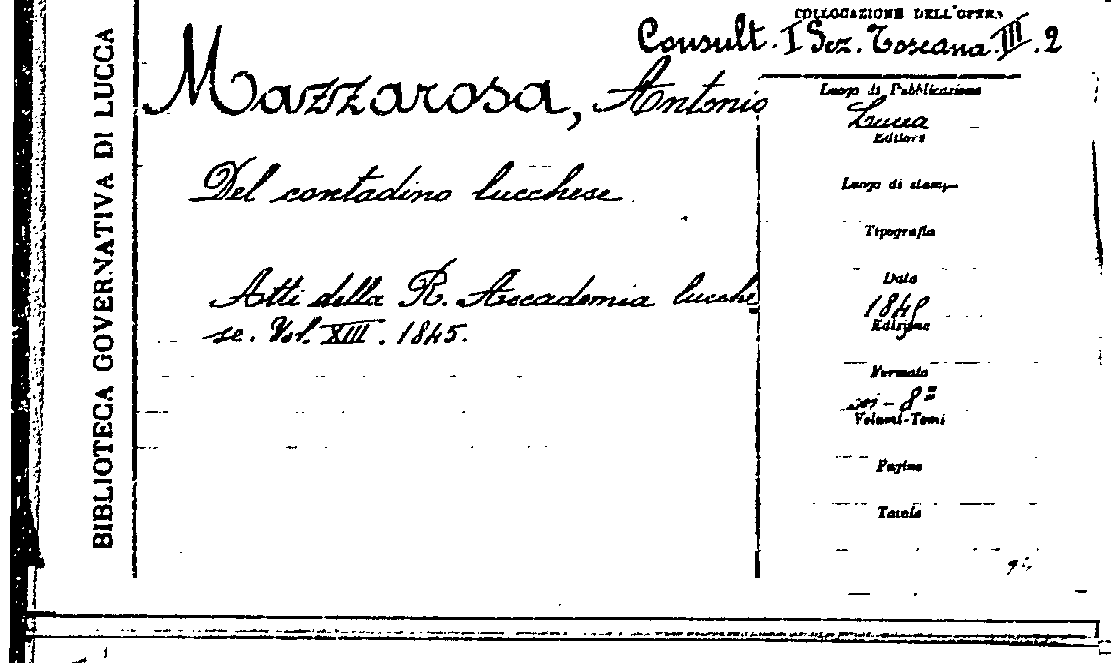 BIBLIOTECA GOVERNATIVA DI LUCCA
COLLOCAZIONE DELL'OPERA
Consult. I Sez. Toscana III. 2
Mazzarosa, Antonio
Del contadino lucchese
Atti della R. Accademia lucche
se. Vol. XIII. 1845.
Luogo di Pubblicazione
Lucca
Editore
Luogo di stampa
Tipografia
Data
Edizione
Formato
in-8º
Volumi-Tomi
Pagine
Tavole